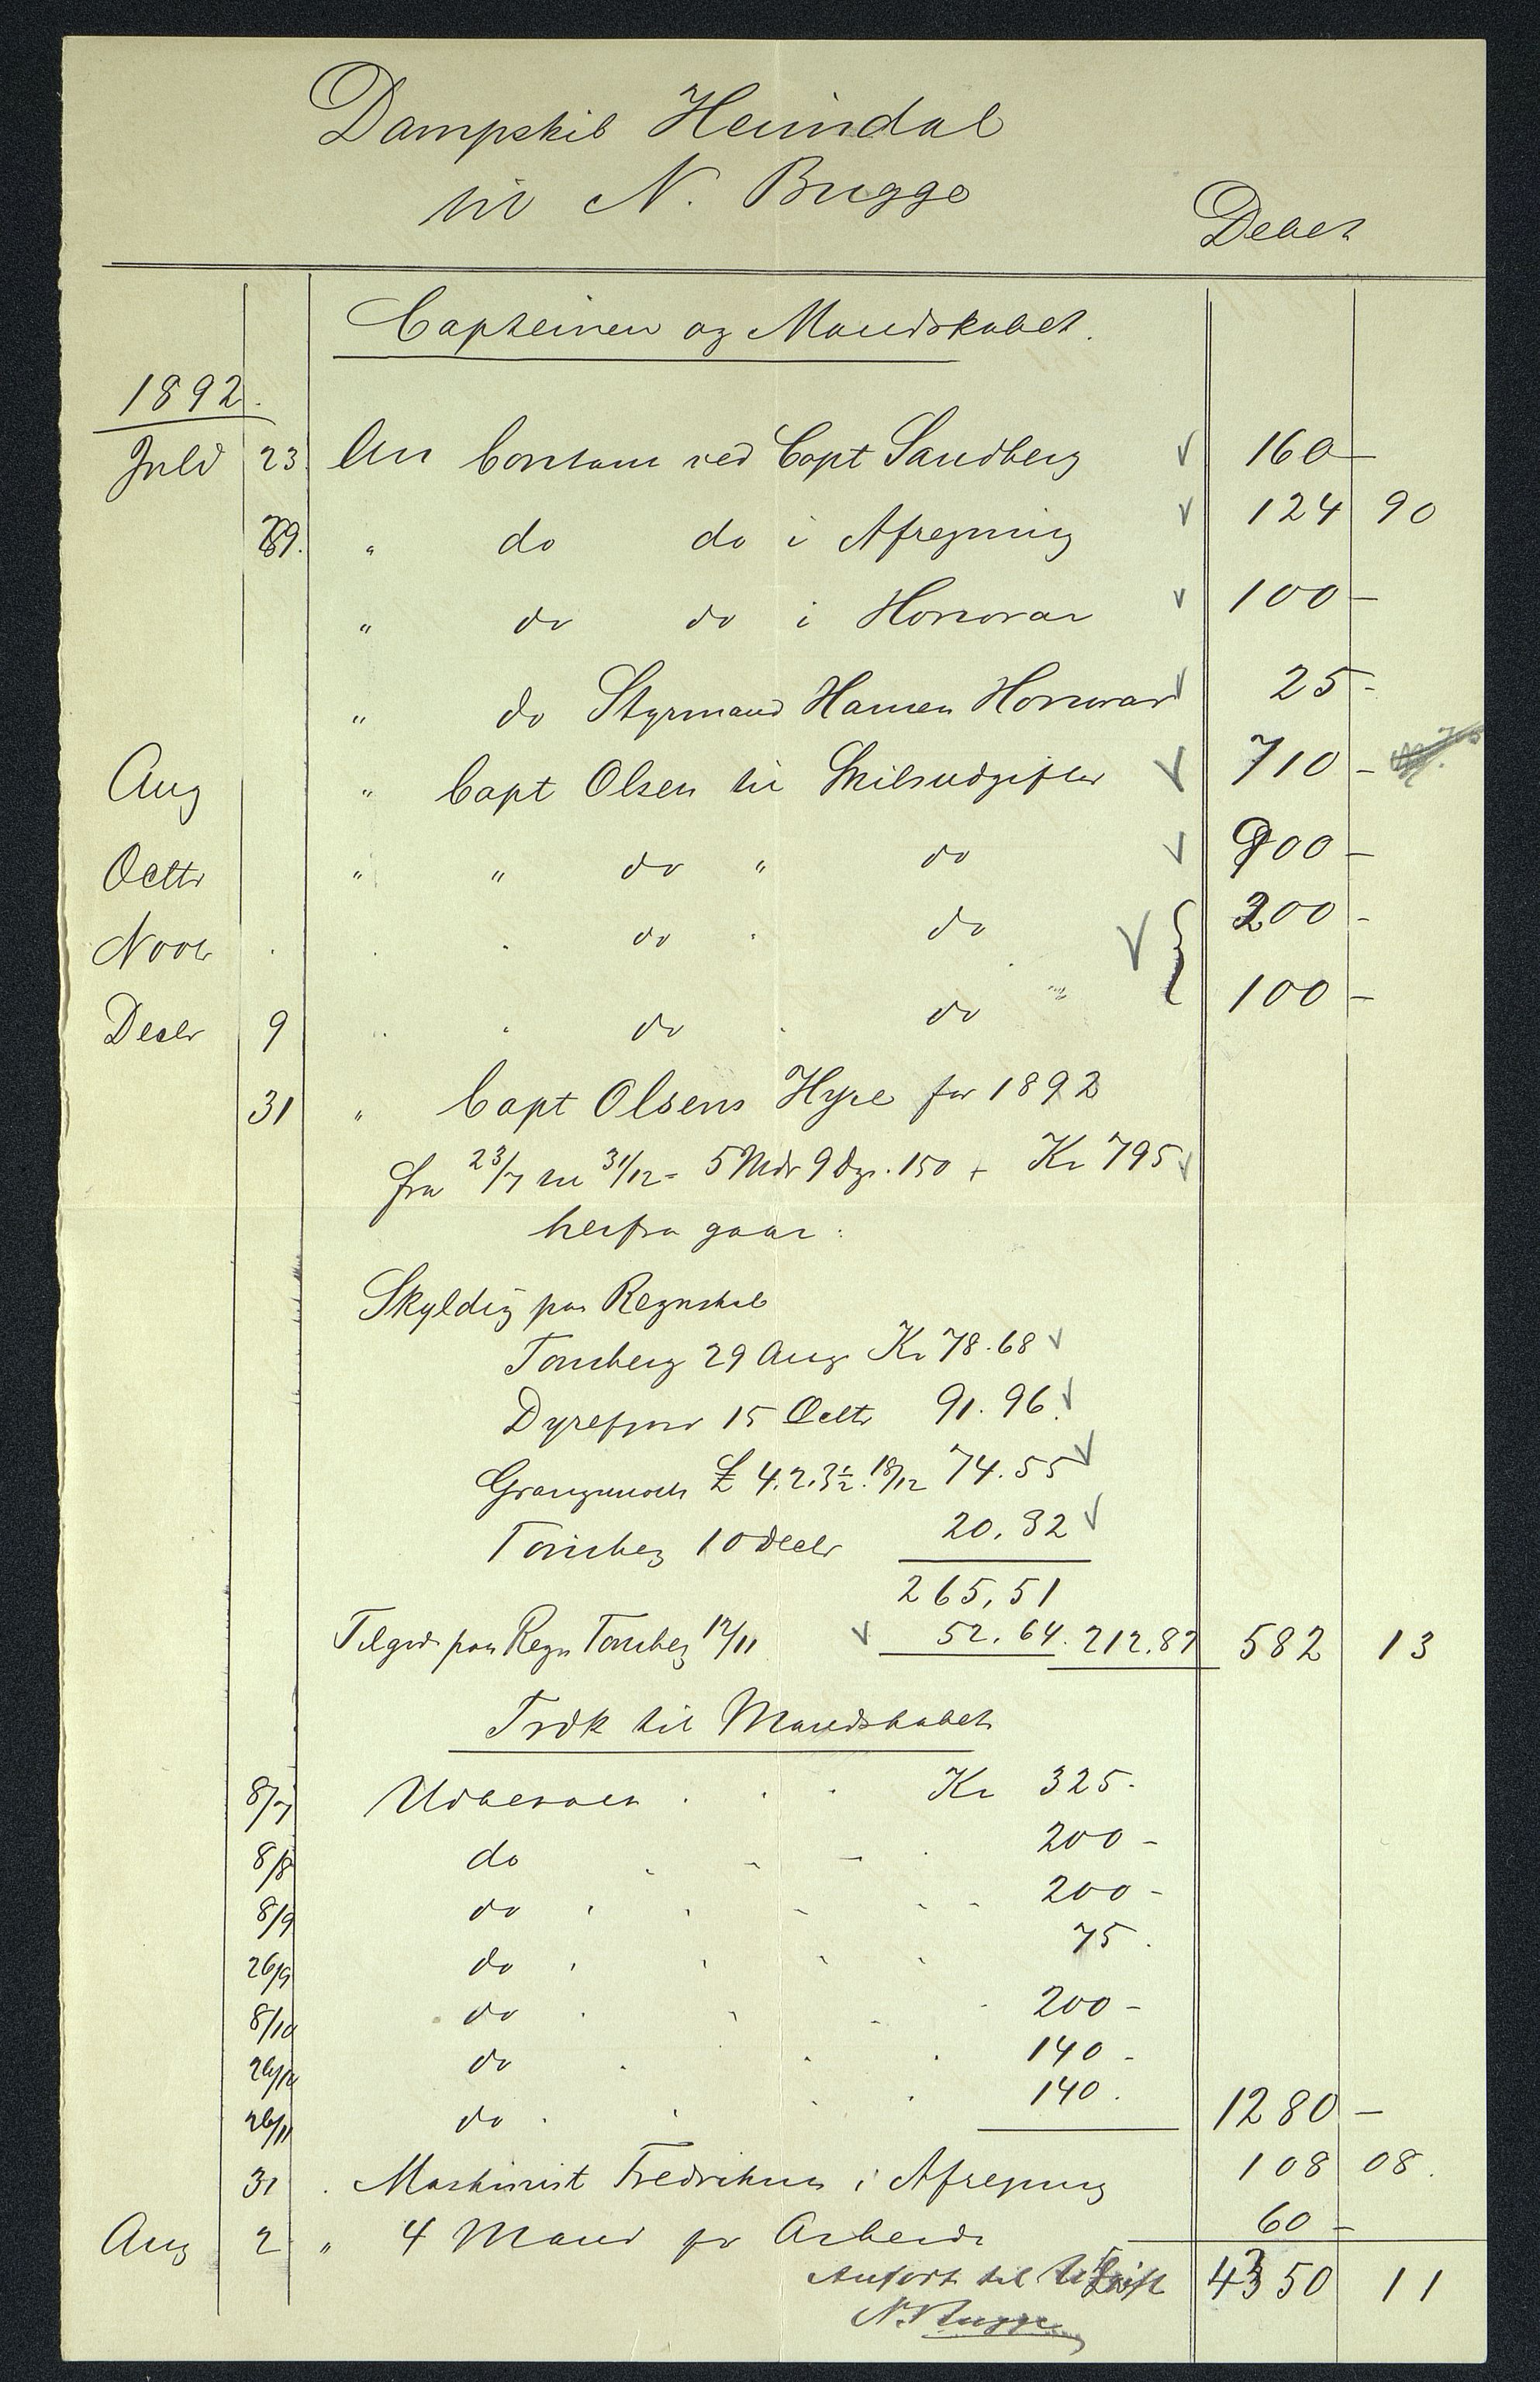 Dampskib Heimdal
til N. Bugge
Debet
Capteinen og Mandskabet.
1892.
Juli 23 An Contant ved Capt Sandberg 160 –
29. " do do i Afregning 124 90
" do do i Honorar 100 –
" do Styrmand Hansen Honorar 25 –
Aug " Capt Olsen til Skibsudgifter 710 –
Octbr " " do " do 900 –
Novbr . . do . do 200 –
Decbr 9 . . do . do 100 –
31 " Capt Olsens Hyre for 1892
fra 23/7 til 31/12 = 5 Mdr 9 Dge. 150 + Kr 795
herfra gaar:
Skyldig paa Regnskab
Tønsberg 29 Aug Kr 78.68
Dyrefjord 15 Octbr 91.96
Grangemouth £ 4.2.3½. 18/12 74.55
Tønsberg 10 Decbr 20.32
265,51
Tilgode paa Regn Tønsberg 12/11 52.64. 212.87 582 13
Træk til Mandskabet
8/7 Udbetalt . . . Kr 325.
8/8 do 200 –
8/9 do 200 –
26/9 do 75.
8/10 do 200 –
26/10 do 140 –
26/11 do 140. 1280 –
31 . Maskinist Fredriksen i Afregning 108 08.
Aug 2 " 4 Mand for Arbeide 60 –
Anført til 4350 11
N. Bugge